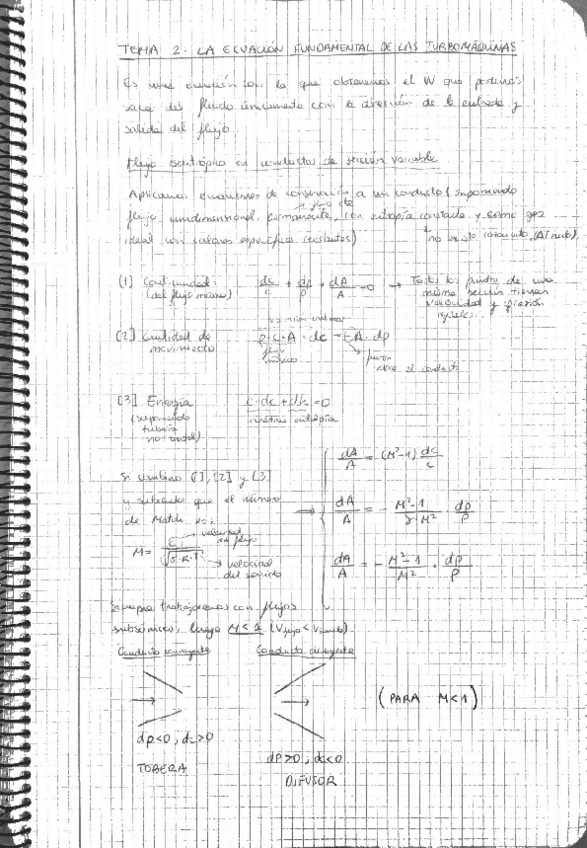 TEMA 2. LA ECUACIÓN FUNDAMENTAL DE LAS TURBOMÁQUINAS
Es una ecuación con la que obtenemos el W que podemos
sacar del fluido únicamente con la dirección de la entrada y
salida del flujo.
Flujo isentrópico en conductos de sección variable
Aplicamos ecuaciones de conservación a un conducto (suponiendo
flujo unidimensional, permanente, con entropía constante y como gas
ideal con calores específicos constantes)
[1] Continuidad: dc/c + dρ/ρ + dA/A = 0 → Todos los puntos de una
(del flujo másico) misma sección tienen
velocidad y presión
iguales.
[2] Cantidad de ρ·C·A·dc = -A·dp
movimiento flujo másico
sobre el conducto
[3] Energía c·dc + dh = 0
(suponiendo
tubería
no axial)
Si combino [1], [2] y [3]
y sabiendo que el número
de Match es:
M = c/√(γ·R·T) → velocidad del flujo
→ velocidad
del sonido
dA/A = (M²-1) dc/c
dA/A = - (M²-1)/(γ·M²) · dp/p
dA/A = - (M²-1)/M² · dρ/ρ
Siempre trabajaremos con flujos
subsónicos, luego M<1 (Vflujo < Vsonido).
Conducto convergente Conducto divergente
(PARA M<1)
dp<0, dc>0
TOBERA
dP>0, dc<0
DIFUSOR